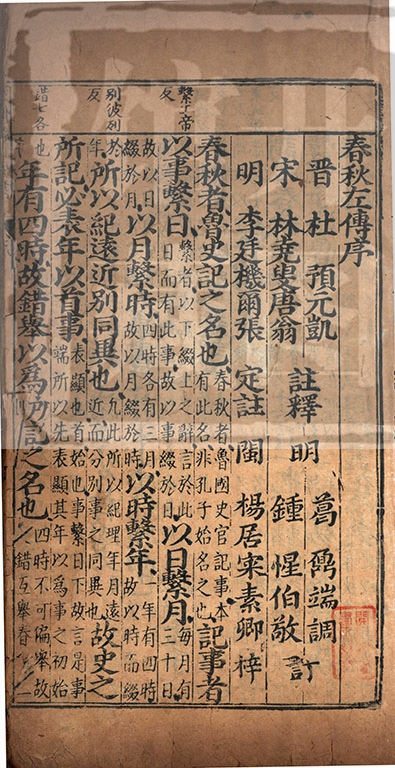 春秋左傳序
晋 杜 預元凱 註釋 明 葛 鼒端調
宋 林堯叟唐翁 鍾 惺伯敬 訂
明 李廷機爾張 定註 閩 楊居寀素卿 梓
春秋者魯史記之名也春秋者魯國史官記事本有此名非孔子始名之也記事者
以事繫日繫者以下綴上之辭言於此日而有此事故以事綴於日以日繫月每月有三十日
故以日綴於月以月繫時四時各有三月故以月綴於時以時繫年一年有四時故以時而綴
於年所以紀遠近別同異也凡此所以紀理年月遠近而分別事之同異也故史之
所記必表年以首事表顯也首始也事繫日下故言是事端所以先表顯其年以為事之初始
也年有四時故錯舉以為所記之名也錯互舉春
四時不可偏舉故
繫音帝
反
別彼列
反
錯七各